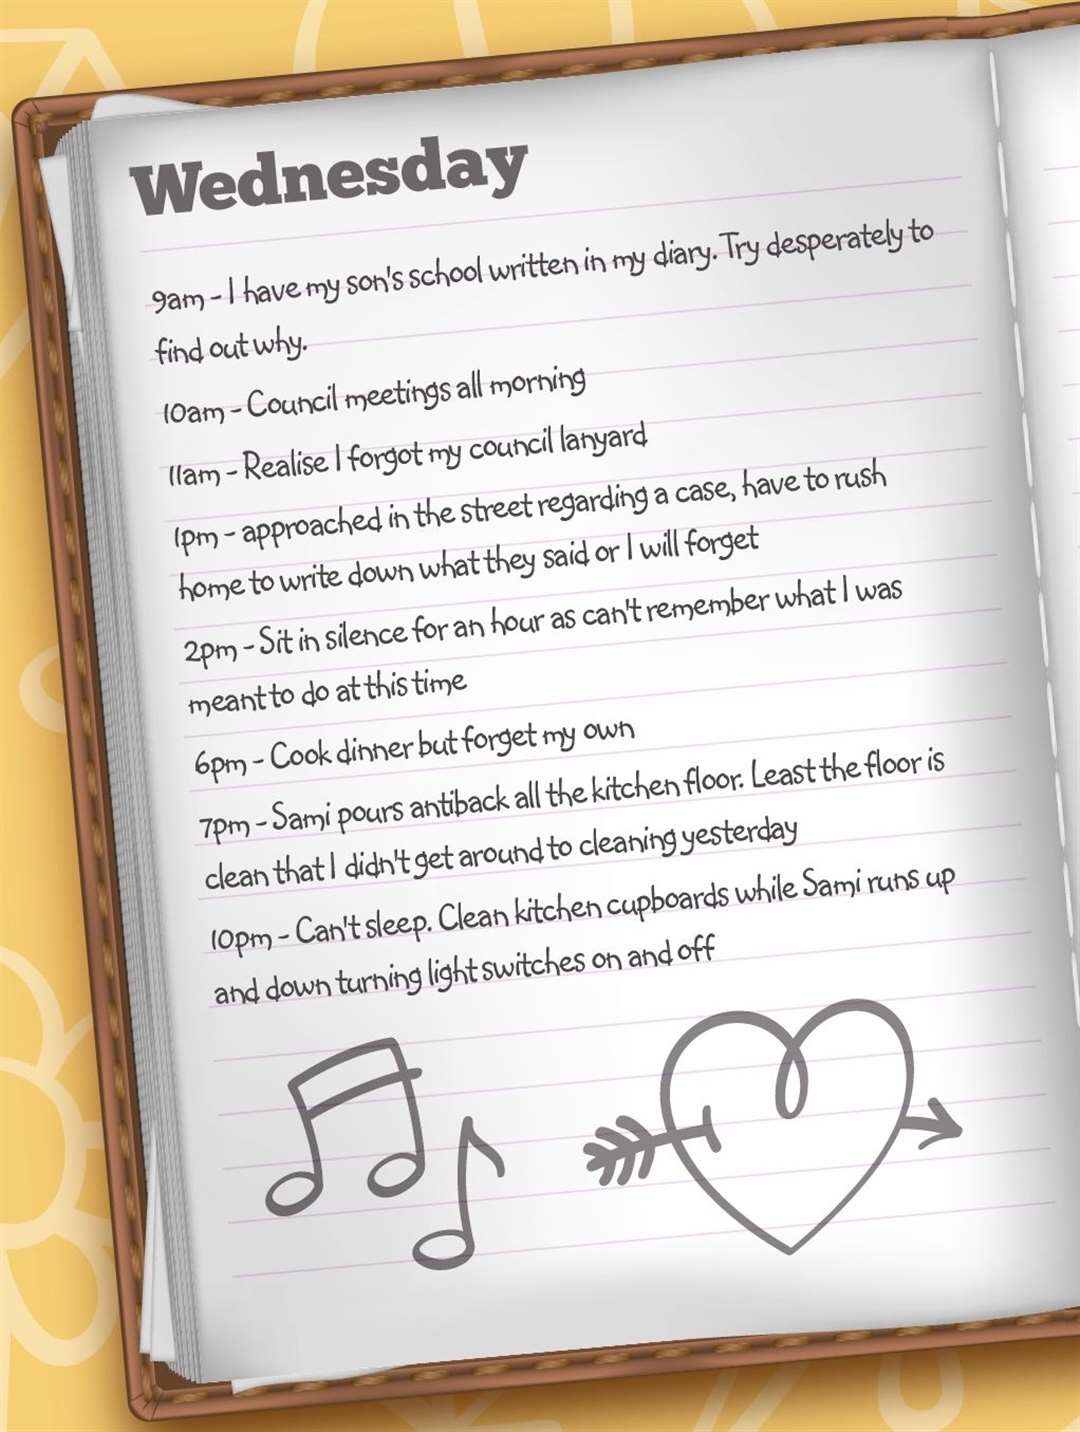 Wednesday
9am - I have my son's school written in my diary. Try desperately to
find out why.
10am - Council meetings all morning
11am - Realise I forgot my council lanyard
1pm - approached in the street regarding a case, have to rush
home to write down what they said or I will forget
2pm - Sit in silence for an hour as can't remember what I was
meant to do at this time
6pm - Cook dinner but forget my own
7pm - Sami pours antiback all the kitchen floor. Least the floor is
clean that I didn't get around to cleaning yesterday
10pm - Can't sleep. Clean kitchen cupboards while Sami runs up
and down turning light switches on and off